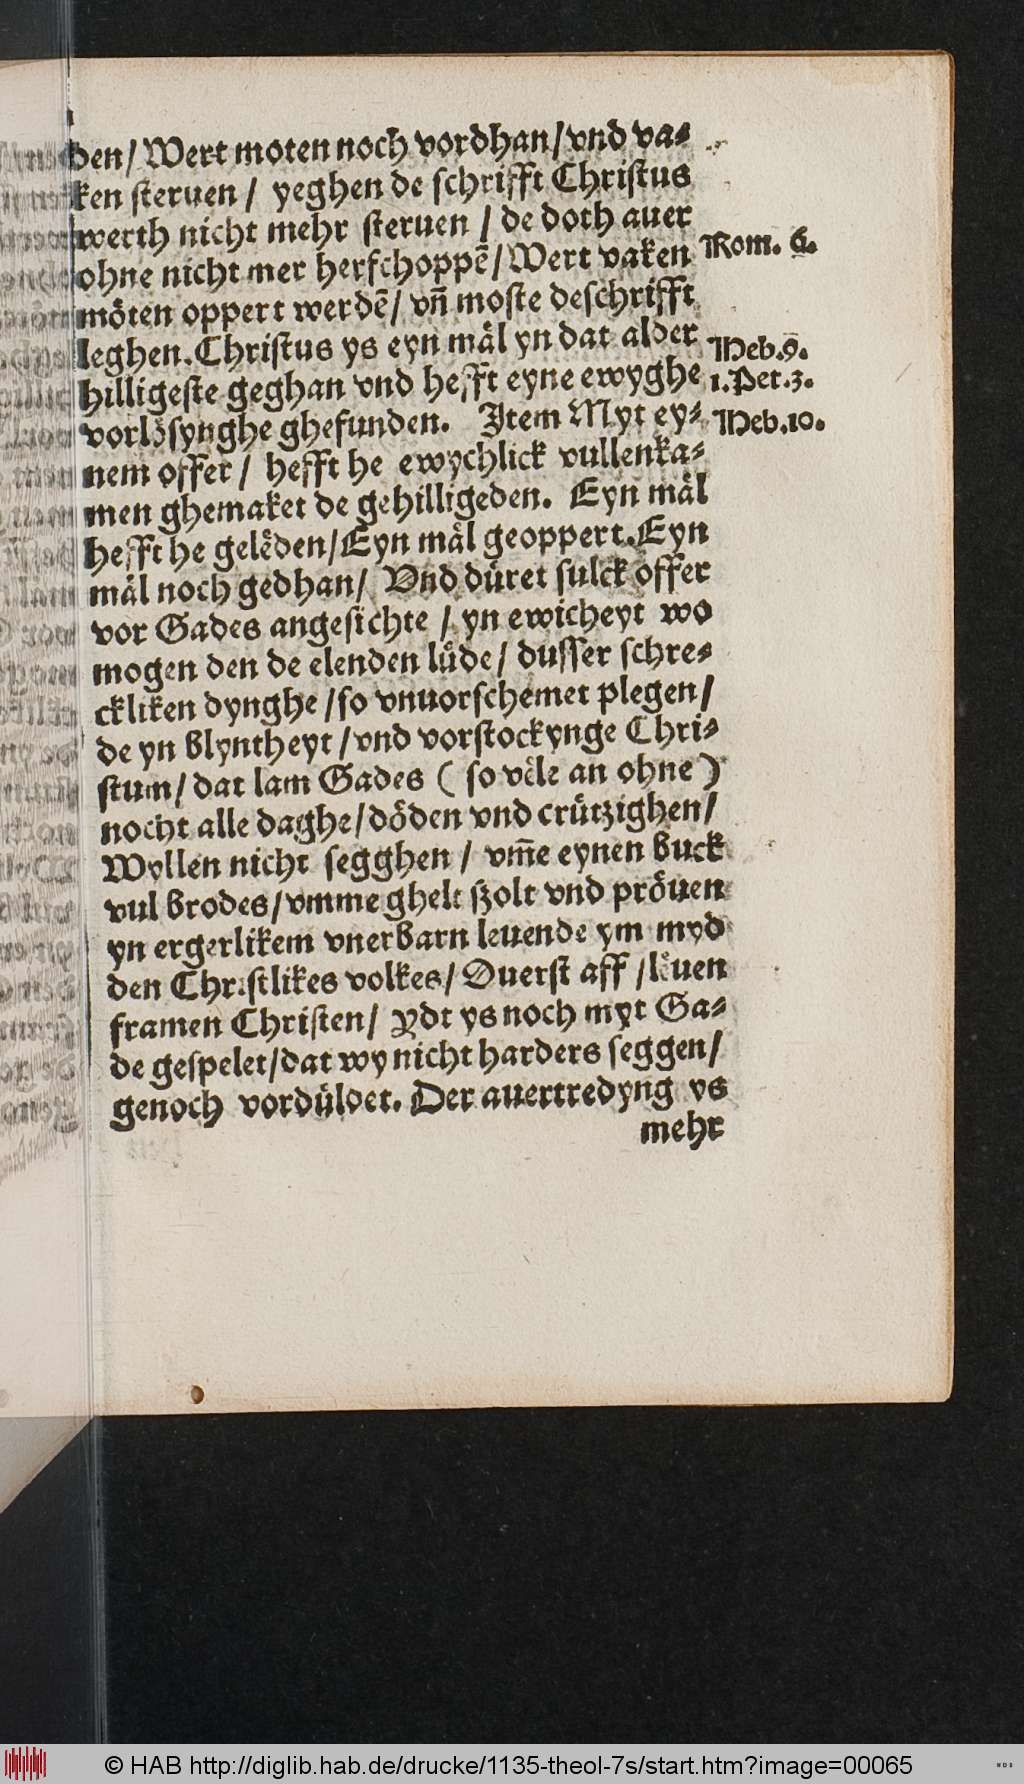 den/ Wert moten noch vordhan/ vnd va⸗
ken steruen / yeghen de schrifft Christus
werth nicht mehr steruen / de doth auer
ohne nicht mer herschoppē/ Wert vaken
Rom. 6.
möten oppert werdē/ vñ moste deschrifft
leghen. Christus ys eyn mäl yn dat alder
Heb. 9.
hilligeste geghan vnd hefft eyne ewyghe
1. Pet. 3.
vorlösynghe ghefunden. Item Myt ey⸗
Heb. 10.
nem offer / hefft he ewychlick vullenka⸗
men ghemaket de gehilligeden. Eyn mäl
hefft he gelëden/ Eyn mäl geoppert. Eyn
mäl noch gedhan/ Vnd düret sulck offer
vor Gades angesichte / yn ewicheyt wo
mogen den de elenden lüde / dusser schre⸗
ckliken dynghe / so vnuorschemet plegen /
de yn blyntheyt / vnd vorstockynge Chri⸗
stum / dat lam Gades ( so vële an ohne )
nocht alle daghe / döden vnd crützighen /
Wyllen nicht segghen / vm̄e eynen buck
vul brodes / vmme ghelt szolt vnd pröuen
yn ergerlikem vnerbarn leuende ym myd
den Christlikes volkes / Ouerst aff / lëuen
framen Christen / Ydt ys noch myt Ga⸗
de gespelet / dat wy nicht harders seggen /
genoch vordüldet. Der auertredyng ys
mehr
© HAB http://diglib.hab.de/drucke/1135-theol-7s/start.htm?image=00065